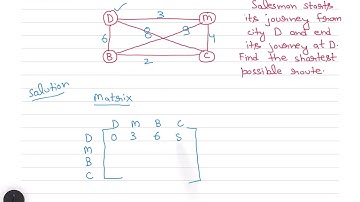 Salesman starts
its journey from
city D and end
its journey at D.
Find the shortest
possible route.
D 3 M
6 8 9 4
B 2 C
Solution
Matrix
D M B C
D 0 3 6 8
M
B
C